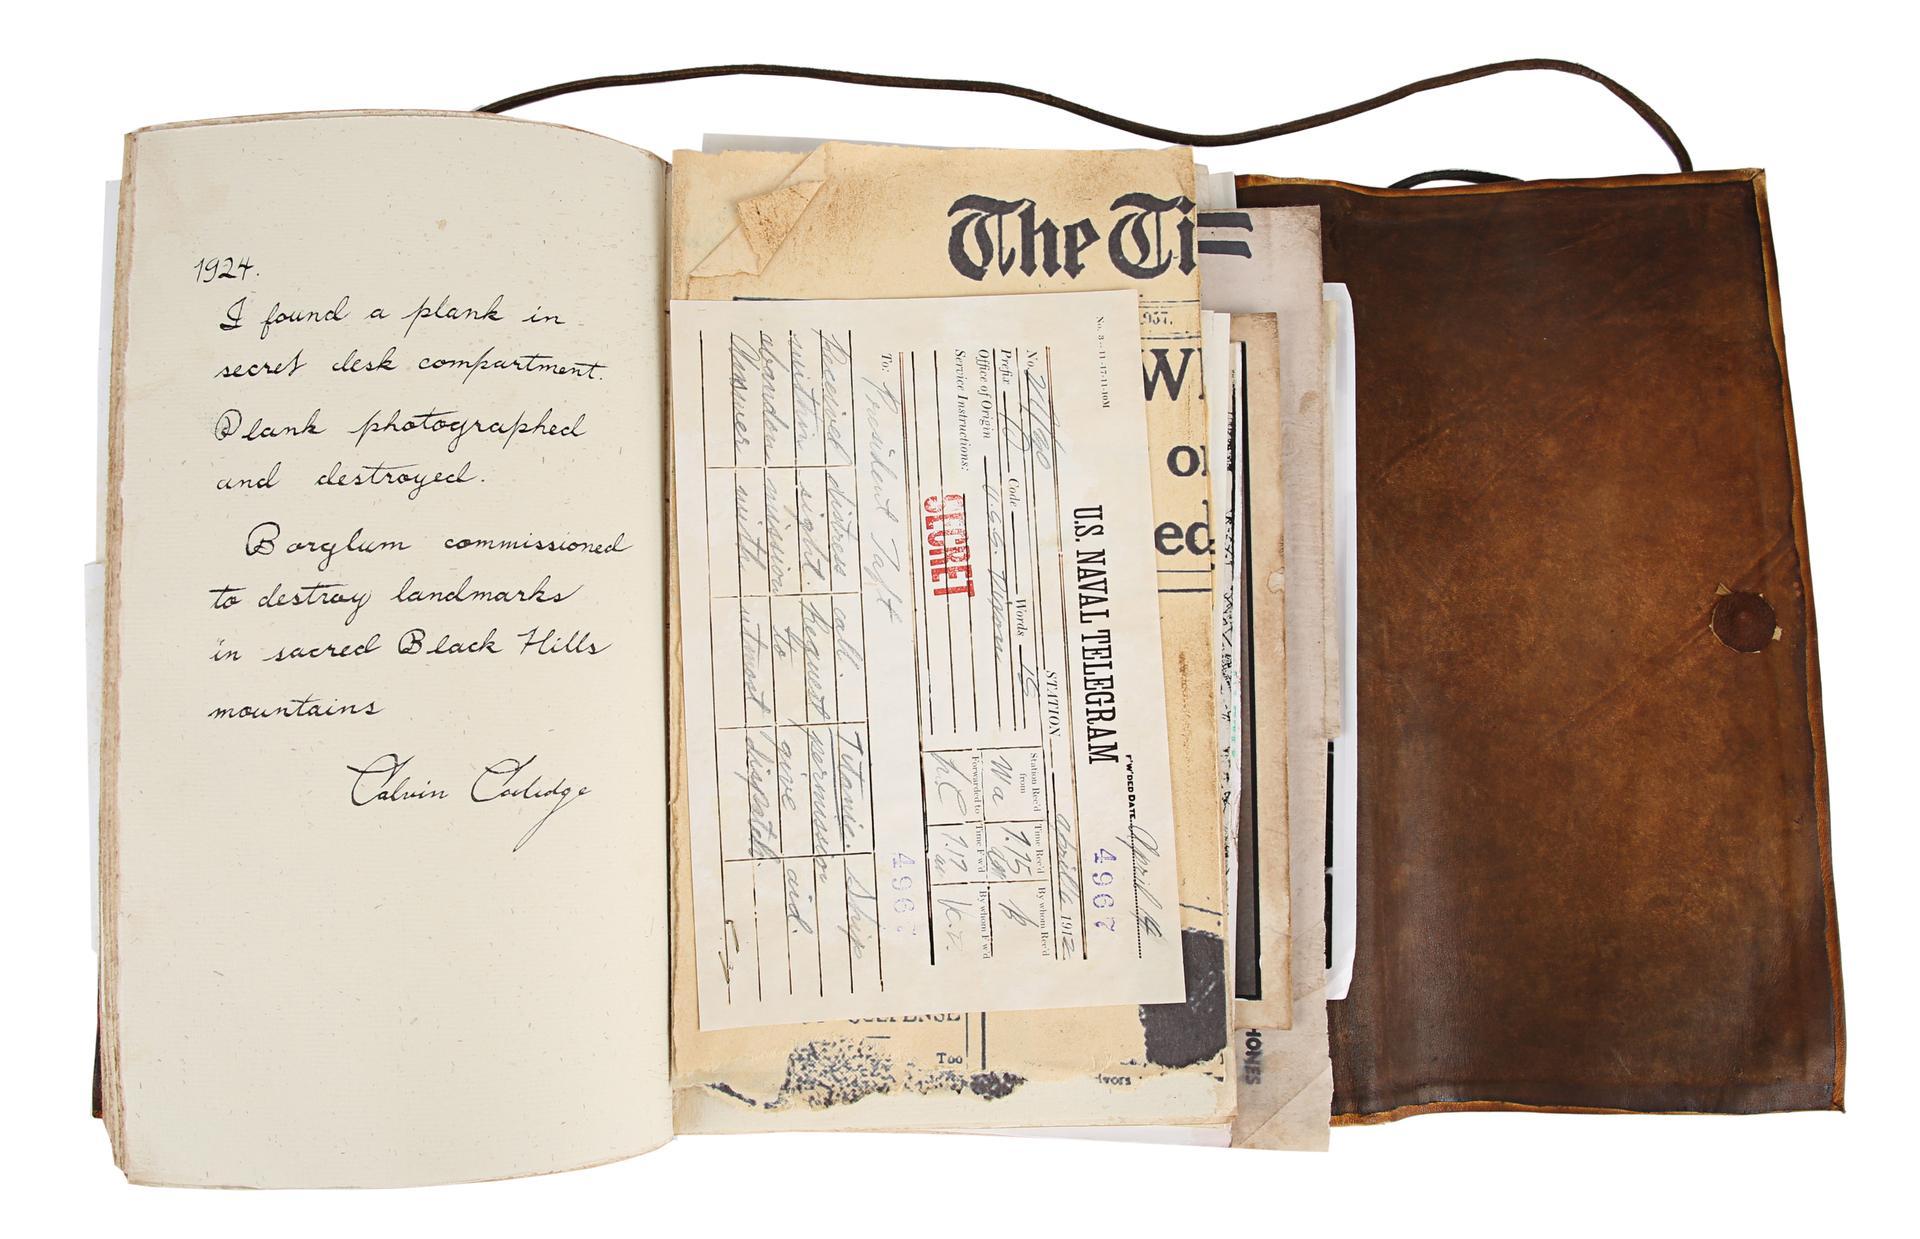 1924.
I found a plank in
secret desk compartment.
Plank photographed
and destroyed.
Borglum commissioned
to destroy landmarks
in sacred Black Hills
mountains
Calvin Coolidge
The Ti
1937.
W
o
ed
No. 3—11-17-11-10M
F'W'DED DATE April 14
U.S. NAVAL TELEGRAM
4967
STATION 1912
No.
Prefix Code Words
Office of Origin U.S.S.
Service Instructions:
Station Rec'd from Time Rec'd By whom Rec'd
Wa 1.15 am
Forwarded to Time F'w'd By whom F'w'd
1.17
SECRET
To: President Taft
4967
Received distress call. Titanic. Ship
within sight. Request permission
abandon mission to give aid.
Answer with utmost dispatch.
SUSPENSE
Too
ivors
HONES